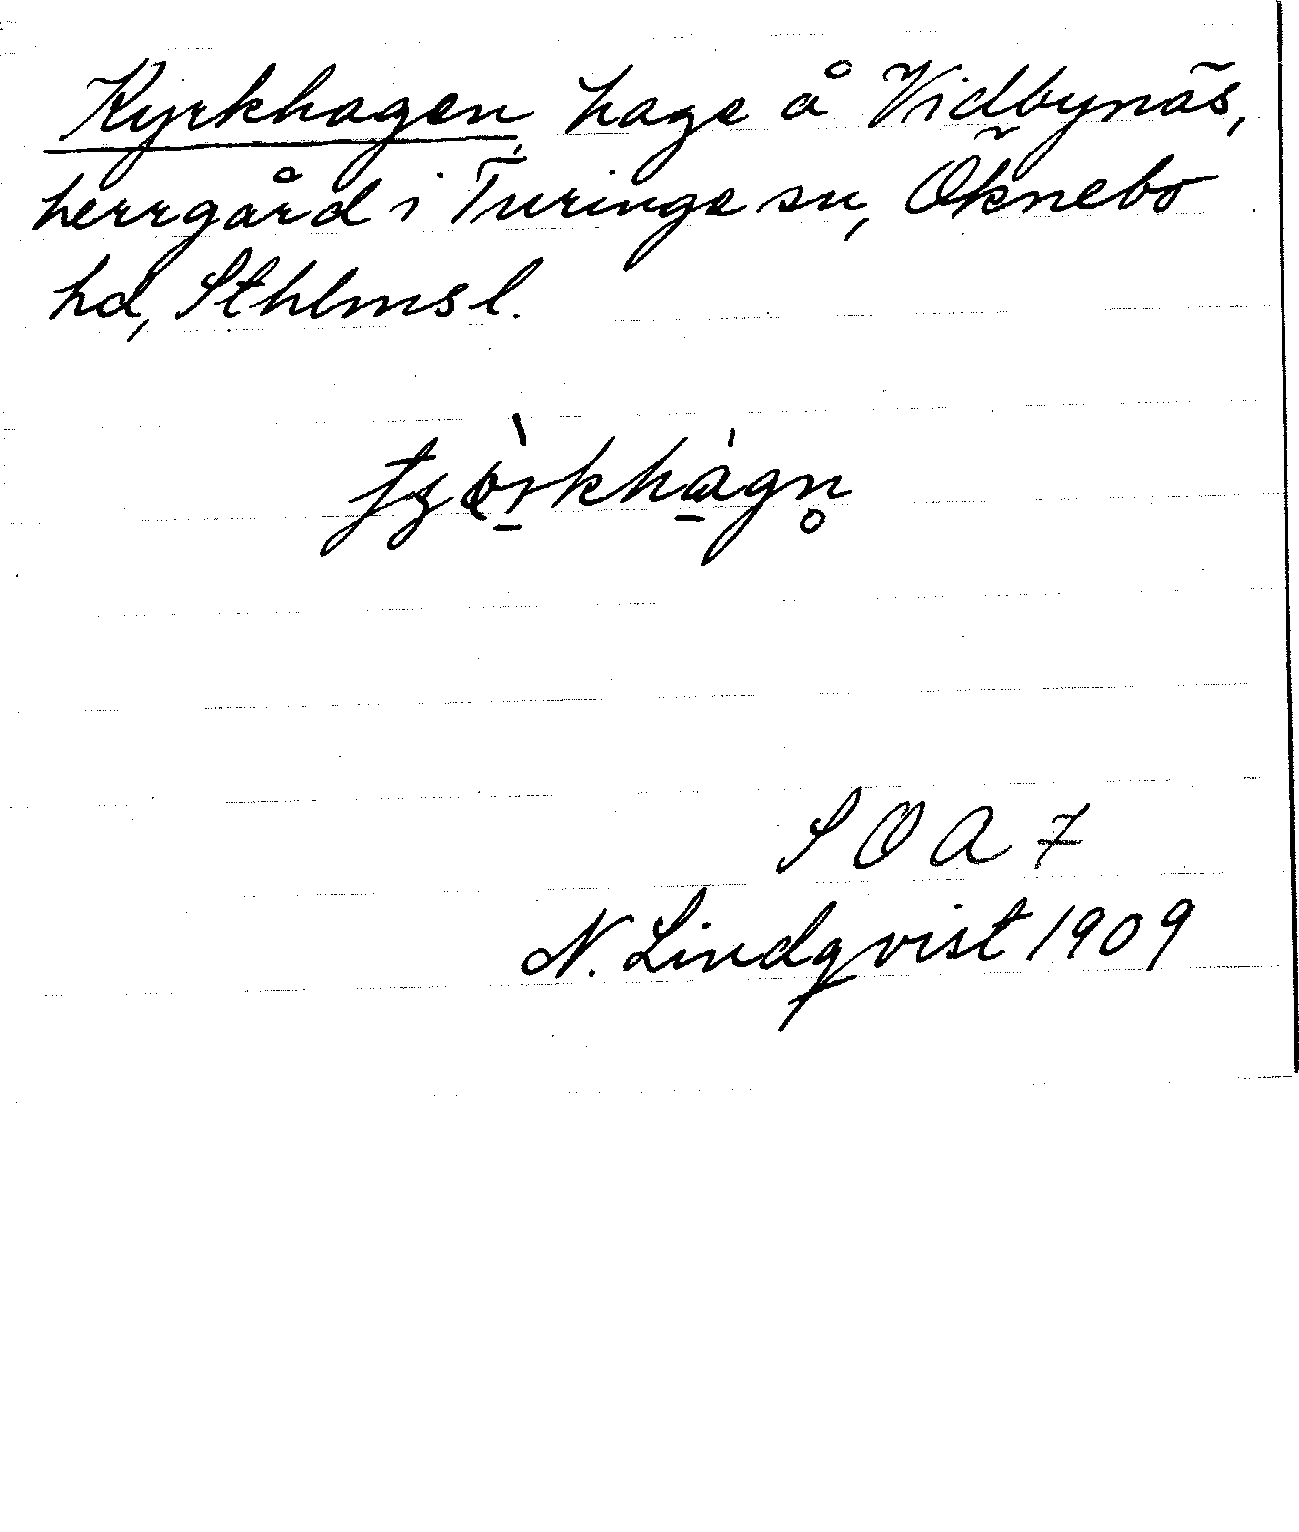 Kyrkhagen, hage å Vidbynäs,
herrgård i Turinge sn, Öknebo
hd, Sthlms l.
SOA 7
N. Lindqvist 1909